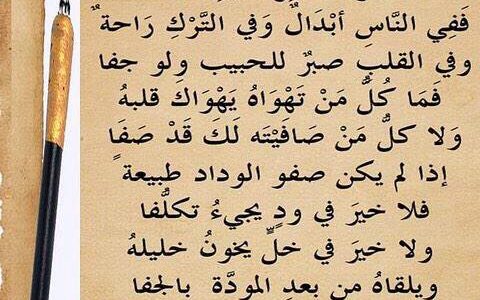 فَفِي النَّاسِ أبْدَالٌ وَفي التَّرْكِ رَاحةٌ
وفي القلبِ صبرٌ للحبيب ولو جفا
فَمَا كُلُّ مَنْ تَهْوَاهُ يَهْوَاكَ قلبهُ
وَلا كلُّ مَنْ صَافَيْتَه لَكَ قَدْ صَفَا
إذا لم يكن صفو الوداد طبيعة
فلا خيرَ في ودٍ يجيءُ تكلُّفا
ولا خيرَ في خلٍّ يخونُ خليلهُ
ويلقاهُ من بعدِ المودَّة بالجفا